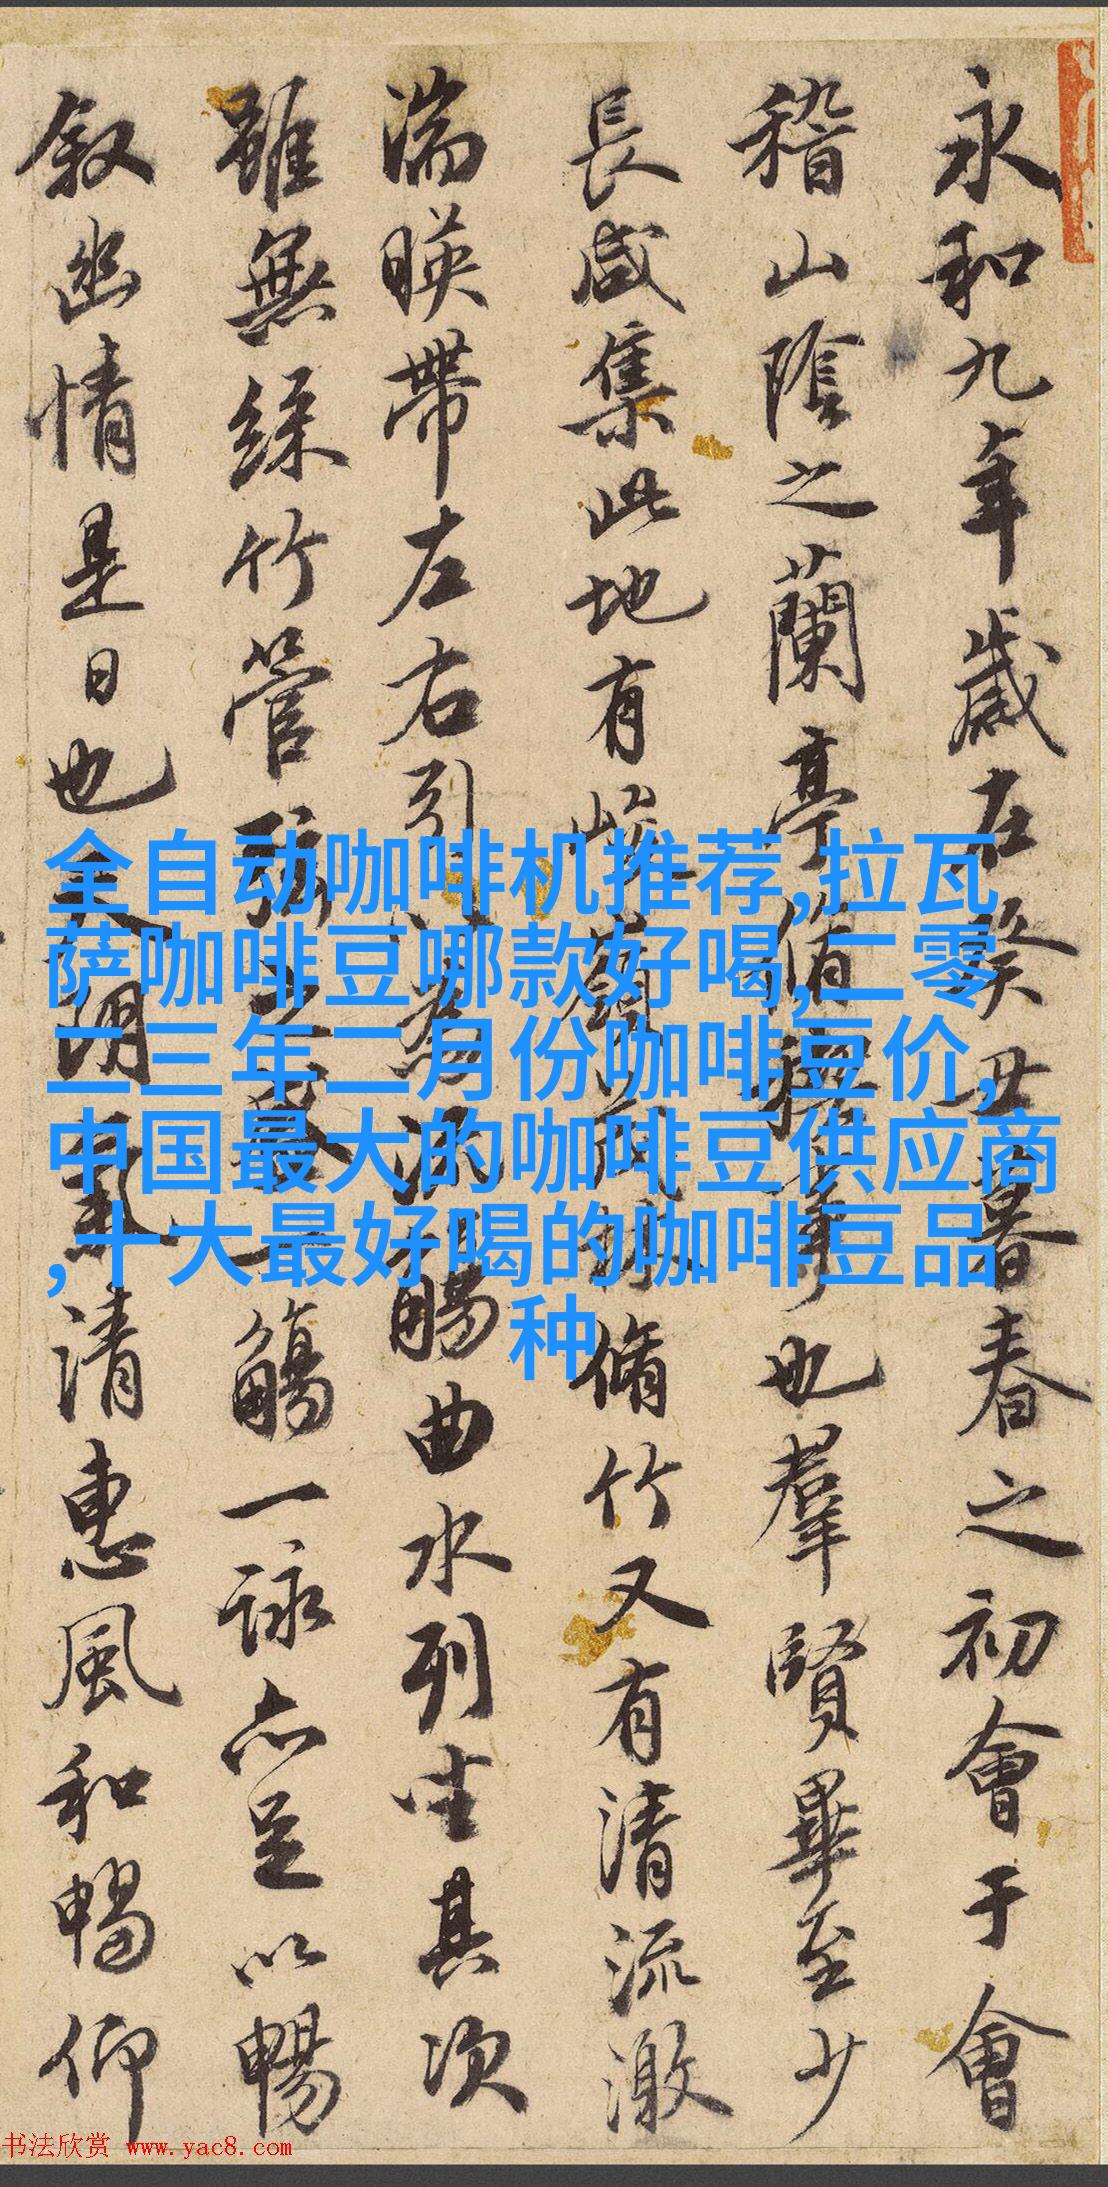 永和九年歲在癸丑暮春之初會于會
稽山陰之蘭亭脩禊事也羣賢畢至少
長咸集此地有峻嶺茂林脩竹又有清流激
湍暎帶左右引以為流觴曲水列坐其次
雖無絲竹管弦之盛一觴一詠亦足以暢
叙幽情是日也天朗氣清惠風和暢仰
全自动咖啡机推荐,拉瓦
萨咖啡豆哪款好喝,二零
二三年二月份咖啡豆价,
中国最大的咖啡豆供应商
,十大最好喝的咖啡豆品
种
书法欣赏 www.yac8.com